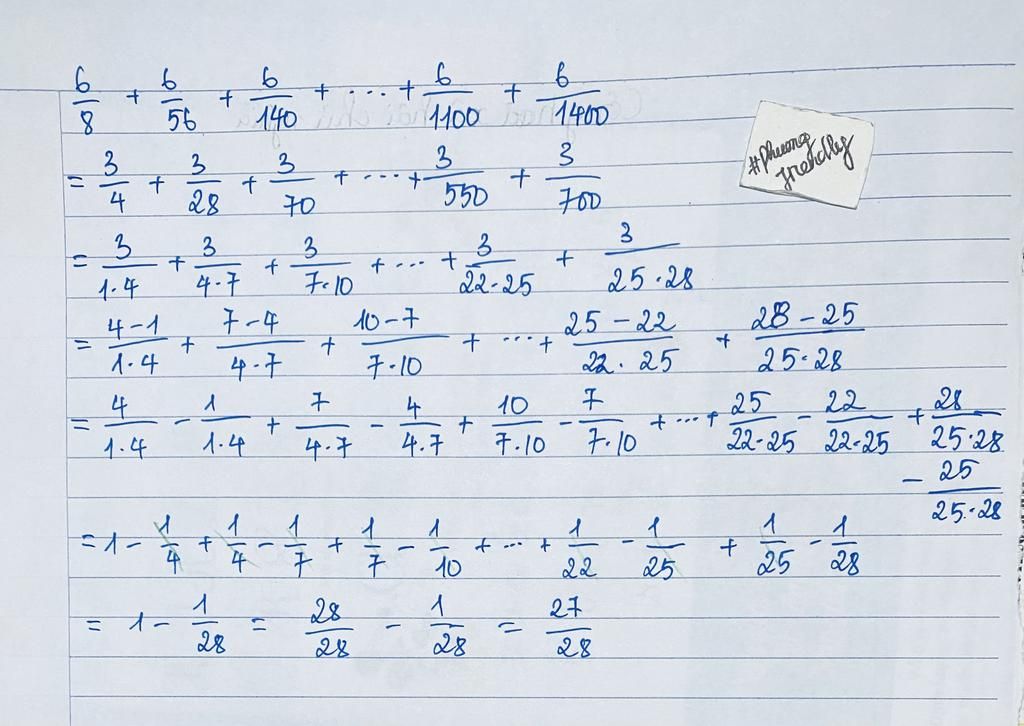 6/8 + 6/56 + 6/140 + ... + 6/1100 + 6/1400
#Phuong
friendly
= 3/4 + 3/28 + 3/70 + ... + 3/550 + 3/700
= 3/1·4 + 3/4·7 + 3/7·10 + ... + 3/22·25 + 3/25·28
= 4-1/1·4 + 7-4/4·7 + 10-7/7·10 + ... + 25-22/22·25 + 28-25/25·28
= 4/1·4 - 1/1·4 + 7/4·7 - 4/4·7 + 10/7·10 - 7/7·10 + ... + 25/22·25 - 22/22·25 + 28/25·28
- 25/25·28
= 1 - 1/4 + 1/4 - 1/7 + 1/7 - 1/10 + ... + 1/22 - 1/25 + 1/25 - 1/28
= 1 - 1/28 = 28/28 - 1/28 = 27/28